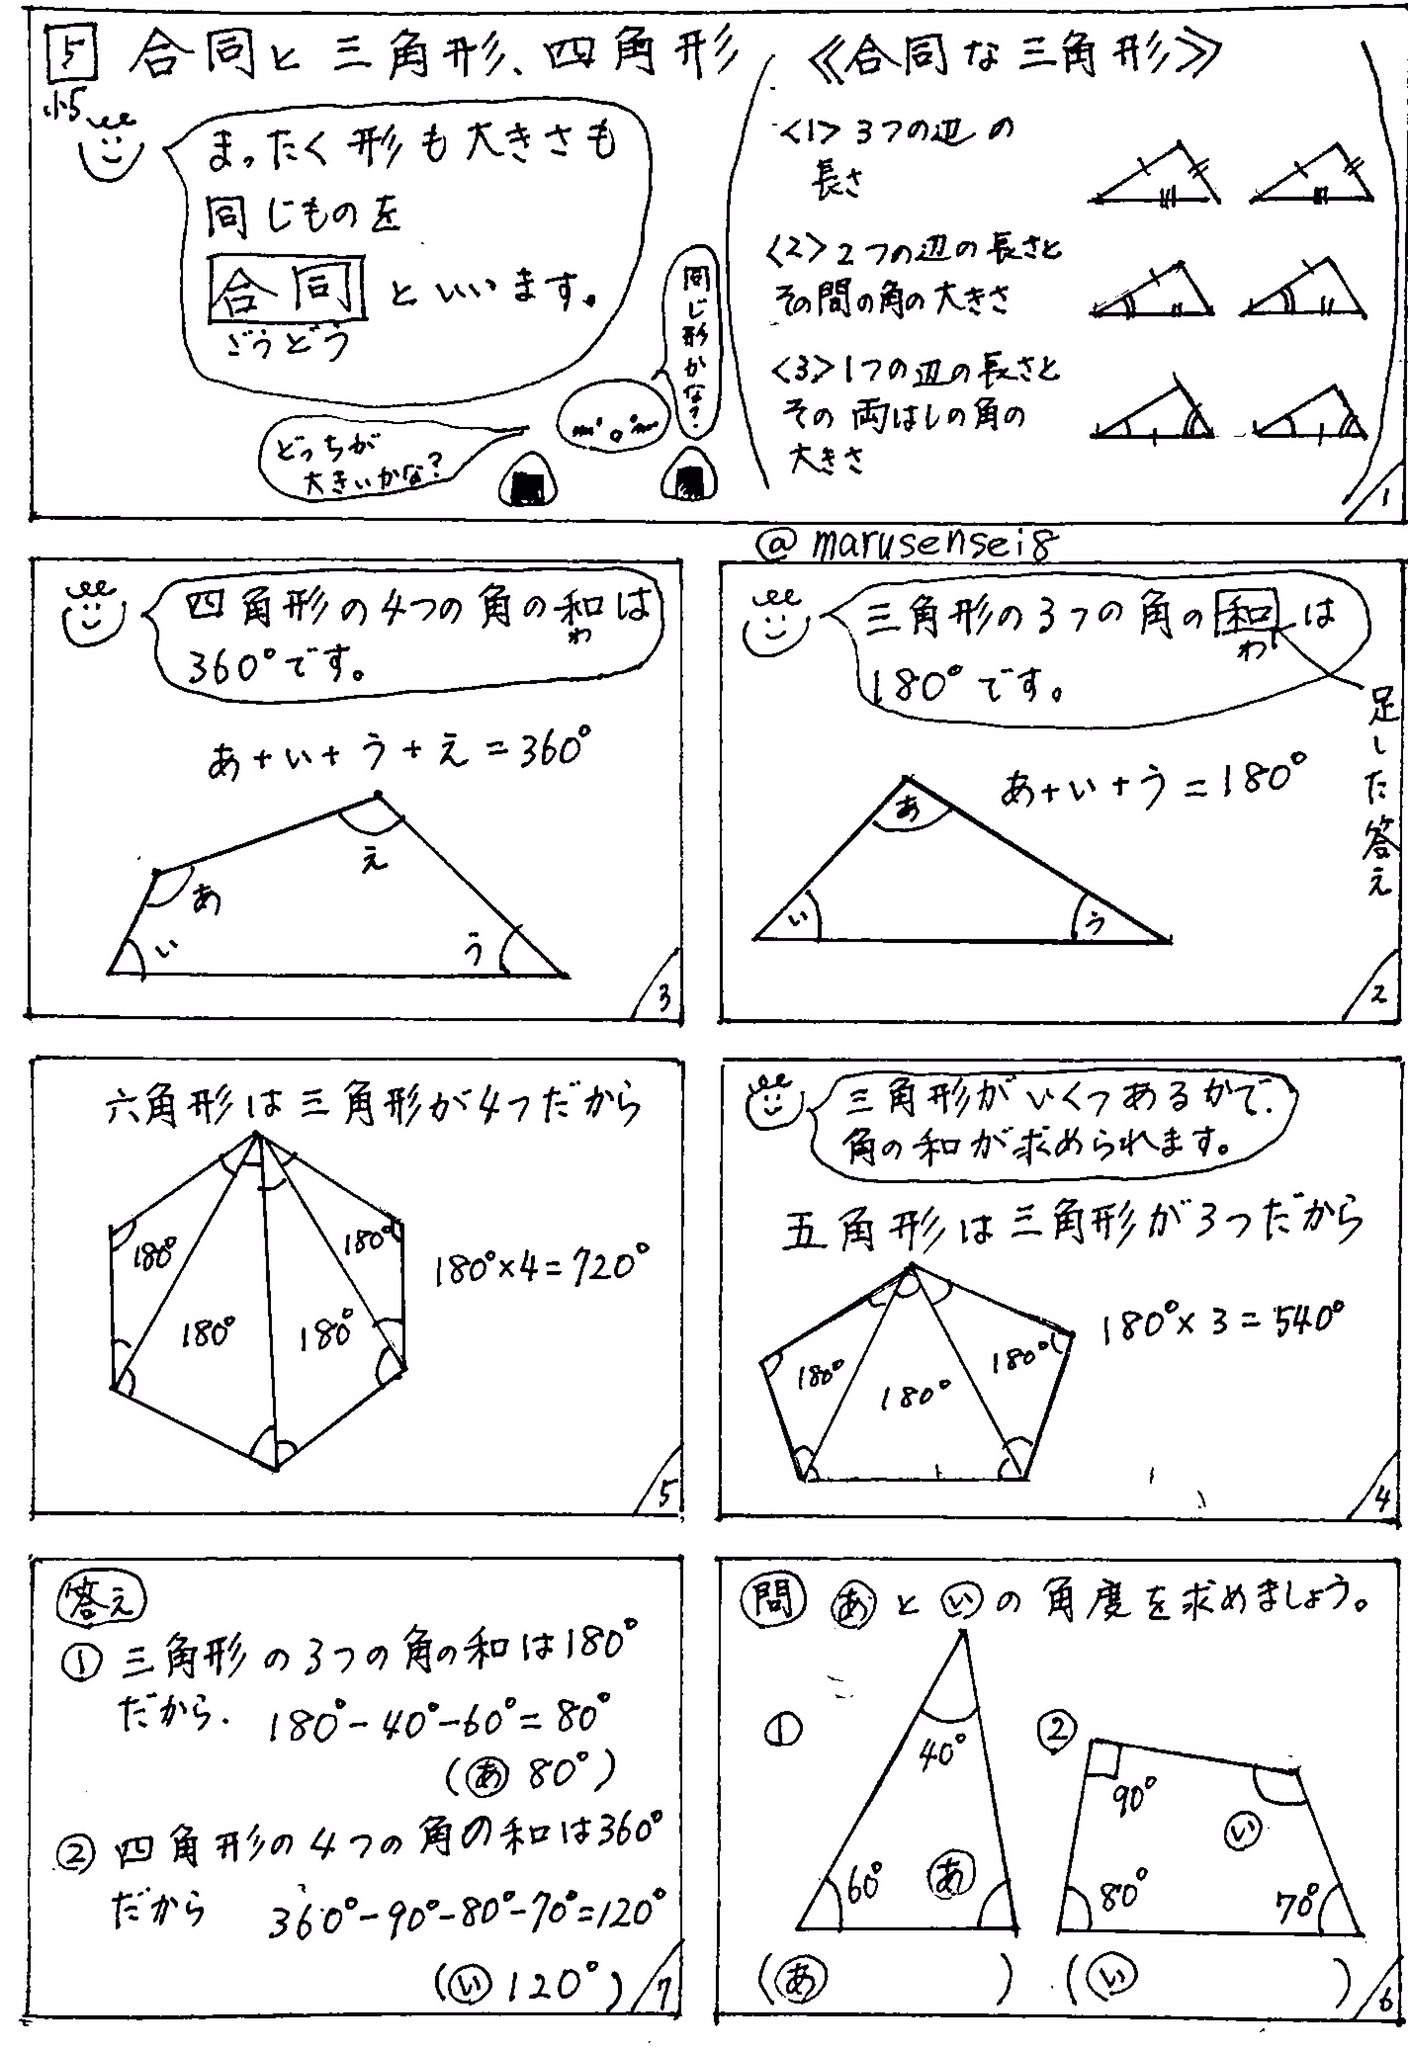 5 合同と三角形、四角形
小5
まったく形も大きさも
同じものを
合同といいます。
ごうどう
同じ形かな?
どっちが
大きいかな?
《合同な三角形》
<1>3つの辺の
長さ
<2>2つの辺の長さと
その間の角の大きさ
<3>1つの辺の長さと
その両はしの角の
大きさ
1
@marusensei8
三角形の3つの角の和は
わ
180°です。
足した答え
あ+い+う=180°
あ
い
う
2
四角形の4つの角の和は
わ
360°です。
あ+い+う+え=360°
え
あ
い
う
3
三角形がいくつあるかで、
角の和が求められます。
五角形は三角形が3つだから
180°×3=540°
180°
180°
180°
4
六角形は三角形が4つだから
180°
180°
180°×4=720°
180°
180°
5
問 あといの角度を求めましょう。
①
40°
60°
あ
(あ )
②
90°
い
80°
70°
(い )
6
答え
① 三角形の3つの角の和は180°
だから、 180°-40°-60°=80°
(あ 80°)
② 四角形の4つの角の和は360°
だから 360°-90°-80°-70°=120°
(い 120°)
7